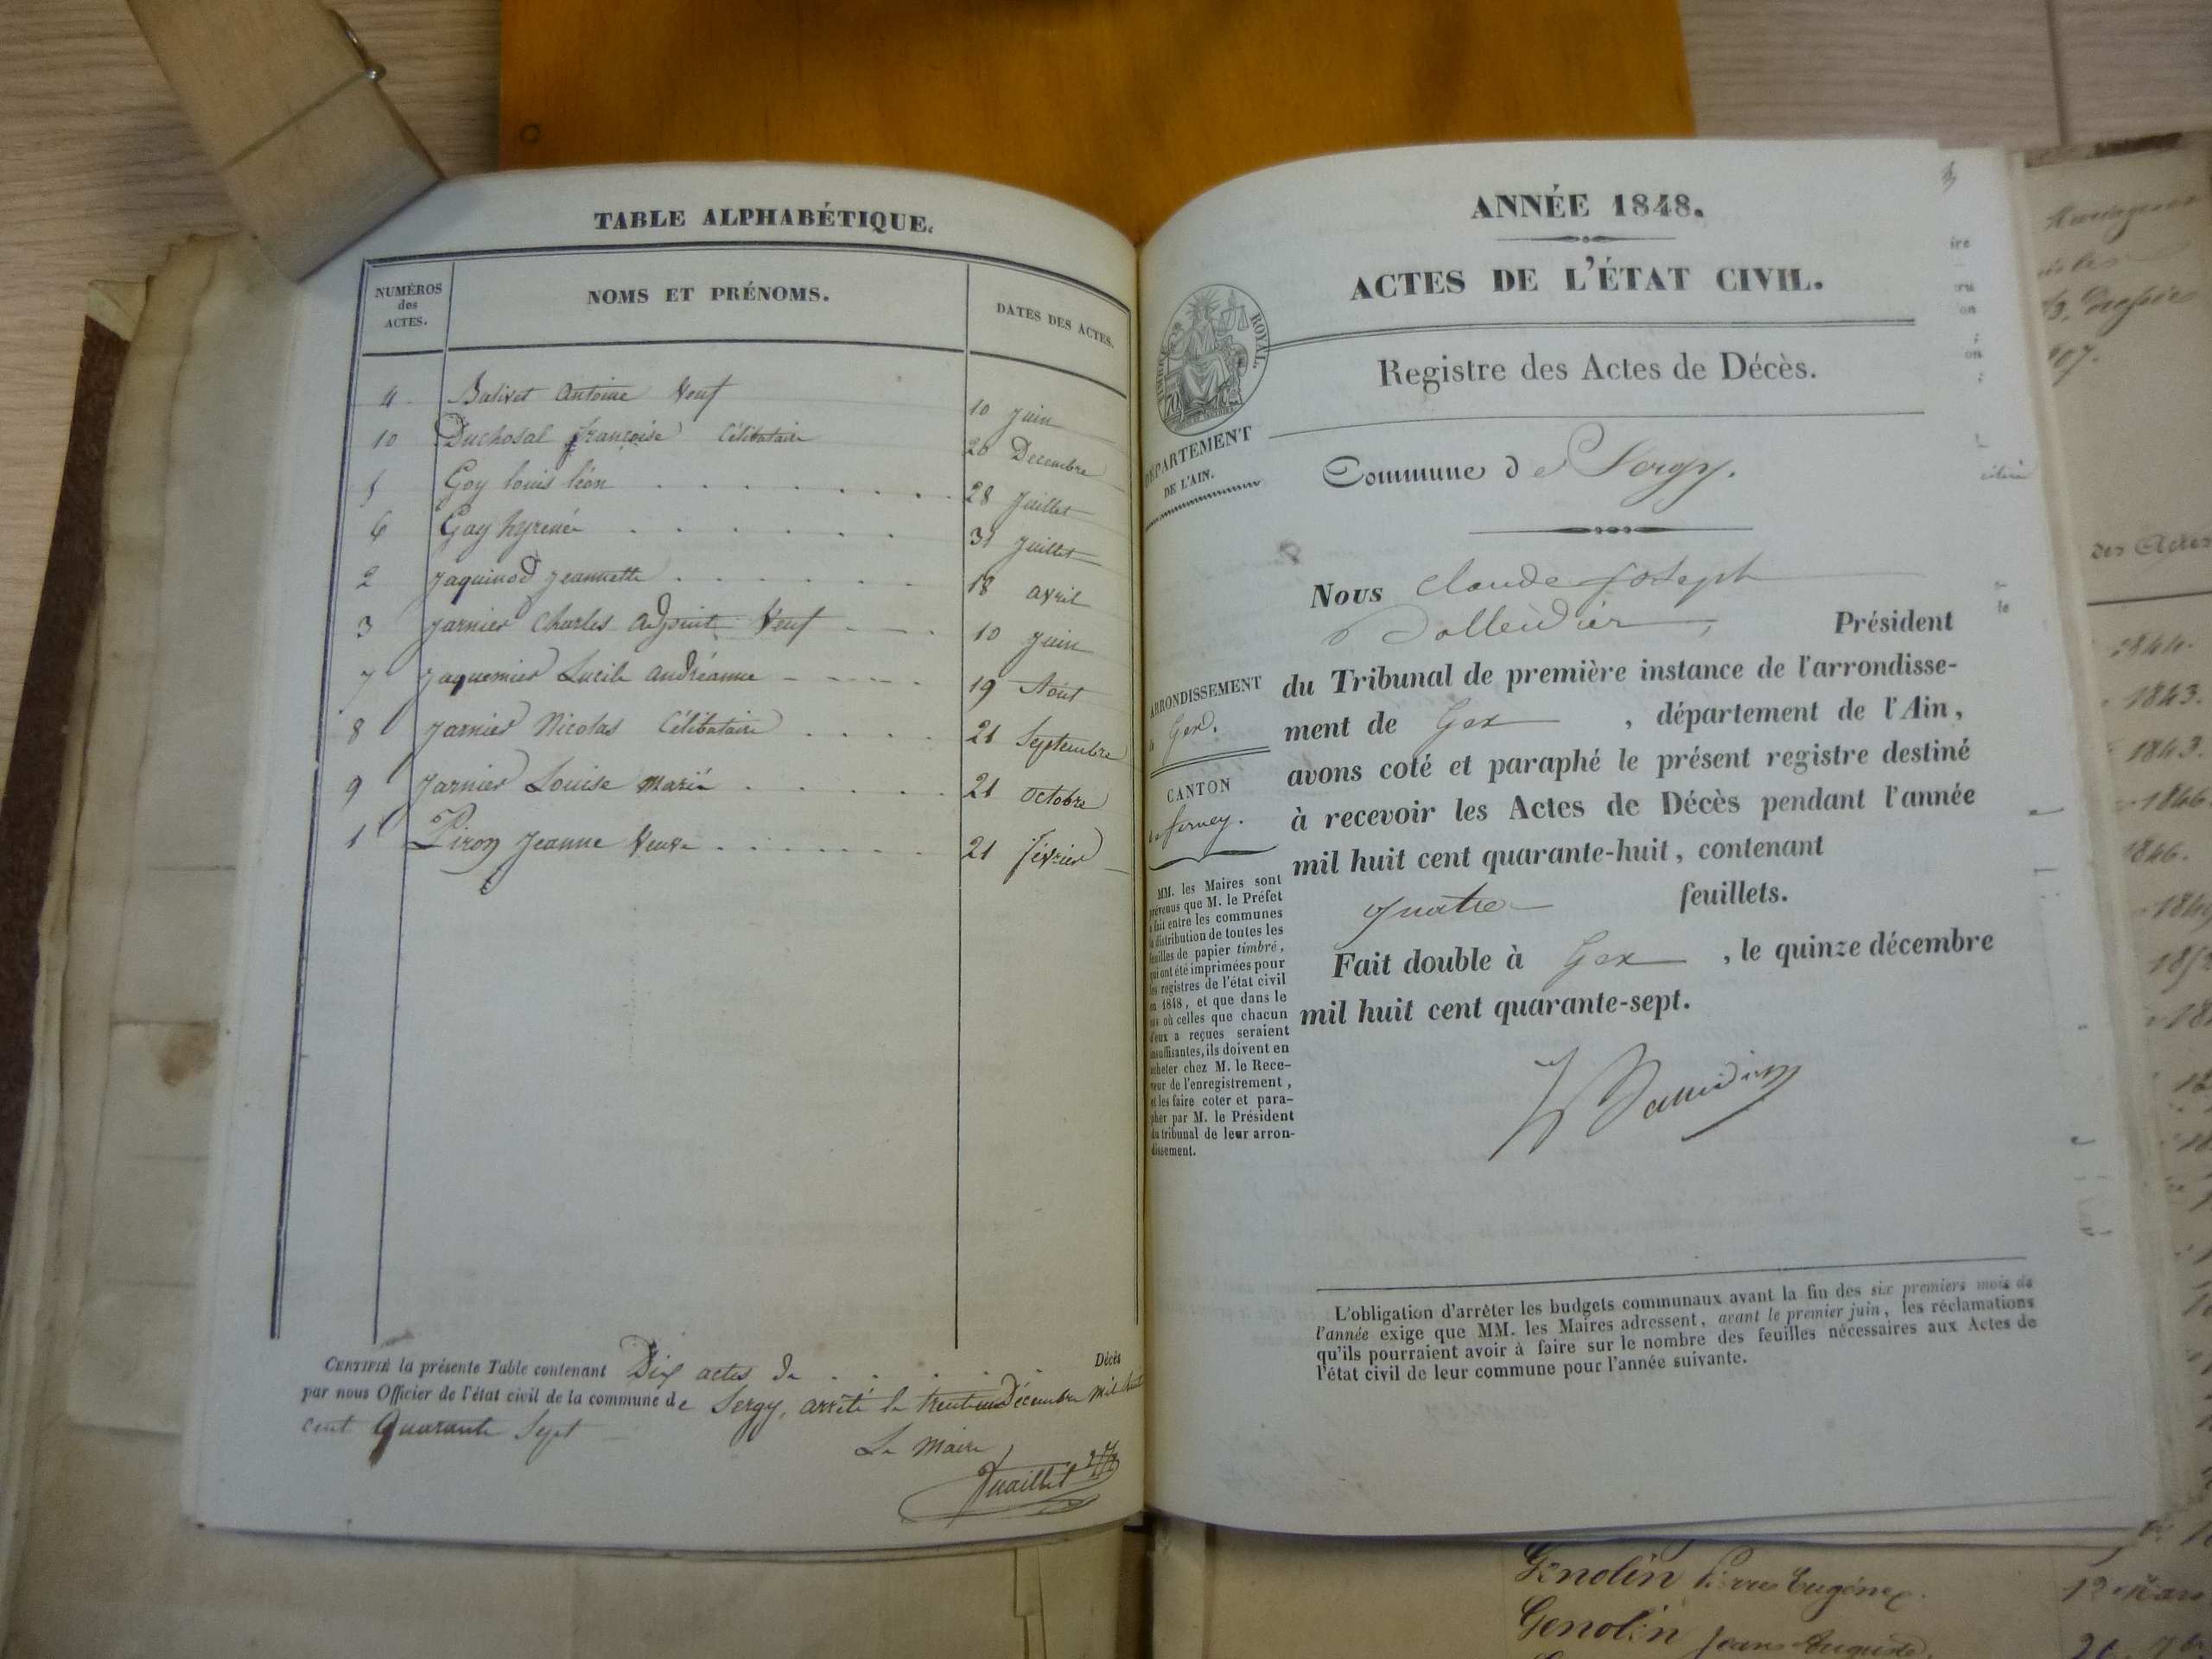 TABLE ALPHABÉTIQUE.
NUMÉROS des ACTES.
NOMS ET PRÉNOMS.
DATES DES ACTES.
4 Balivet antoine Veuf 10 juin
10 Duchosal françoise Célibataire 20 Decembre
5 Goy louis léon 28 juillet
6 Gay 31 juillet
2 jaquinod jeannette 18 avril
3 jarnier Charles adjoint Veuf 10 juin
7 jaquemier Lucile andréanne 19 Août
8 jarnier Nicolas Célibataire 21 Septembre
9 jarnier Louise marié 21 octobre
1 Piron jeanne Veuve 21 février
CERTIFIÉ la présente Table contenant Dix actes de Décès
par nous Officier de l'état civil de la commune de Sergy, arrêté le trente un Décembre mil huit
cent quarante Sept
Le Maire
ANNÉE 1848.
ACTES DE L'ÉTAT CIVIL.
Registre des Actes de Décès.
ROYAL
DÉPARTEMENT
DE L'AIN.
Commune de Sergy.
ARRONDISSEMENT
de Gex.
CANTON
de ferney.
MM. les Maires sont
prévenus que M. le Préfet
a fait entre les communes
la distribution de toutes les
feuilles de papier timbré,
qui ont été imprimées pour
les registres de l'état civil
en 1848, et que dans le
cas où celles que chacun
d'eux a reçues seraient
insuffisantes, ils doivent en
acheter chez M. le Rece-
veur de l'enregistrement,
et les faire coter et para-
pher par M. le Président
du tribunal de leur arron-
dissement.
Nous Claude joseph
Président
du Tribunal de première instance de l'arrondisse-
ment de Gex, département de l'Ain,
avons coté et paraphé le présent registre destiné
à recevoir les Actes de Décès pendant l'année
mil huit cent quarante-huit, contenant
quatre feuillets.
Fait double à Gex, le quinze décembre
mil huit cent quarante-sept.
L'obligation d'arrêter les budgets communaux avant la fin des six premiers mois de
l'année exige que MM. les Maires adressent, avant le premier juin, les réclamations
qu'ils pourraient avoir à faire sur le nombre des feuilles nécessaires aux Actes de
l'état civil de leur commune pour l'année suivante.
des Actes
1844.
1843.
1843.
1846
1846.
Genolin Pierre Eugène 12 Mars
Genolin Jean Auguste